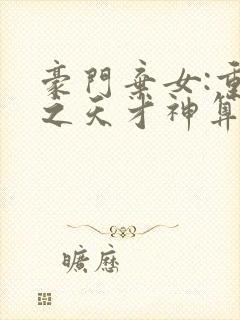 豪門棄女:重
之天才神算
曠歷